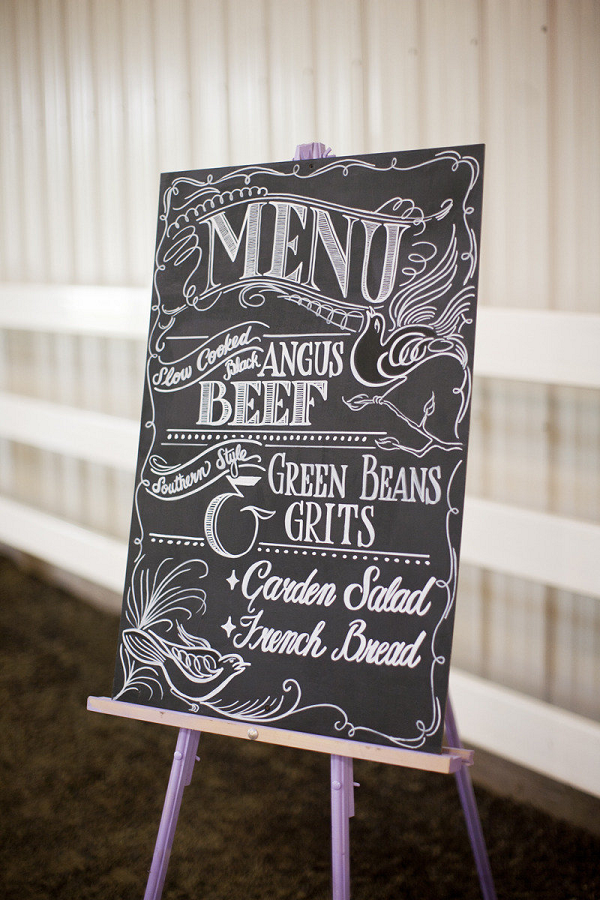 MENU
Slow Cooked Black ANGUS
BEEF
Southern Style GREEN BEANS
& GRITS
Garden Salad
French Bread